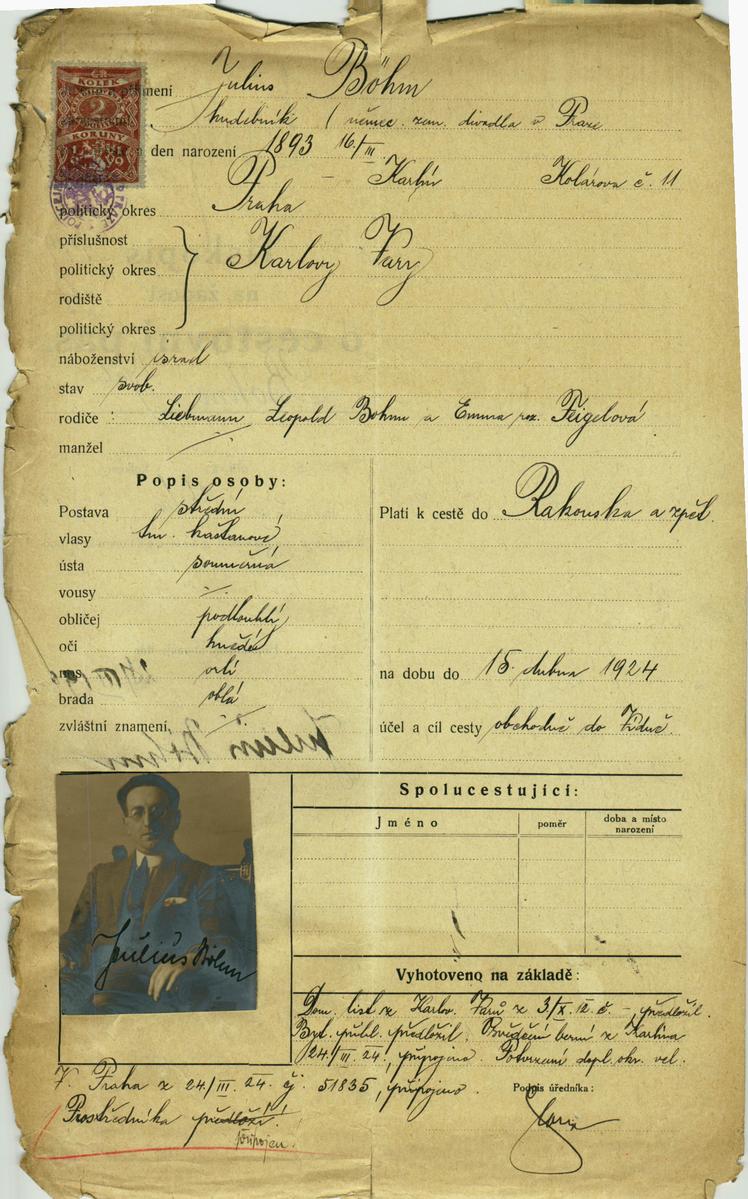 ČR KOLEK
2
KORUNY
1919
příjmení Julius Böhm
hudebník (německ. zem. divadla v Praze
den narození 1893 16/III
Karlín Kolárova č. 11
politický okres Praha
příslušnost
politický okres Karlovy Vary
rodiště
politický okres
náboženství israel
stav svob.
rodiče : Liebmann, Leopold Böhm a Emma roz. Feigelová
manžel
Popis osoby:
Postava střední
vlasy tm. kaštanové
ústa souměrná
vousy
obličej podlouhlý
oči hnědé
nos orlí
brada oblá
zvláštní znamení
Platí k cestě do Rakouska a zpět.
na dobu do 15. dubna 1924
účel a cíl cesty obchodně do Vídně.
Julius Böhm
Spolucestující:
Jméno
poměr
doba a místo narození
Vyhotoveno na základě :
Dom. list z Karlov. Varů z 3/X. 12. č. –, předložil.
Byt. přihl. předložil. Osvědčení berní z Karlína
24./III. 24., připojeno. Potvrzení dopl. okr. vel.
V. Praha z 24./III. 24. čj. 51835, připojeno.
Podpis úředníka :
Prostředníka předloží!
připojen.